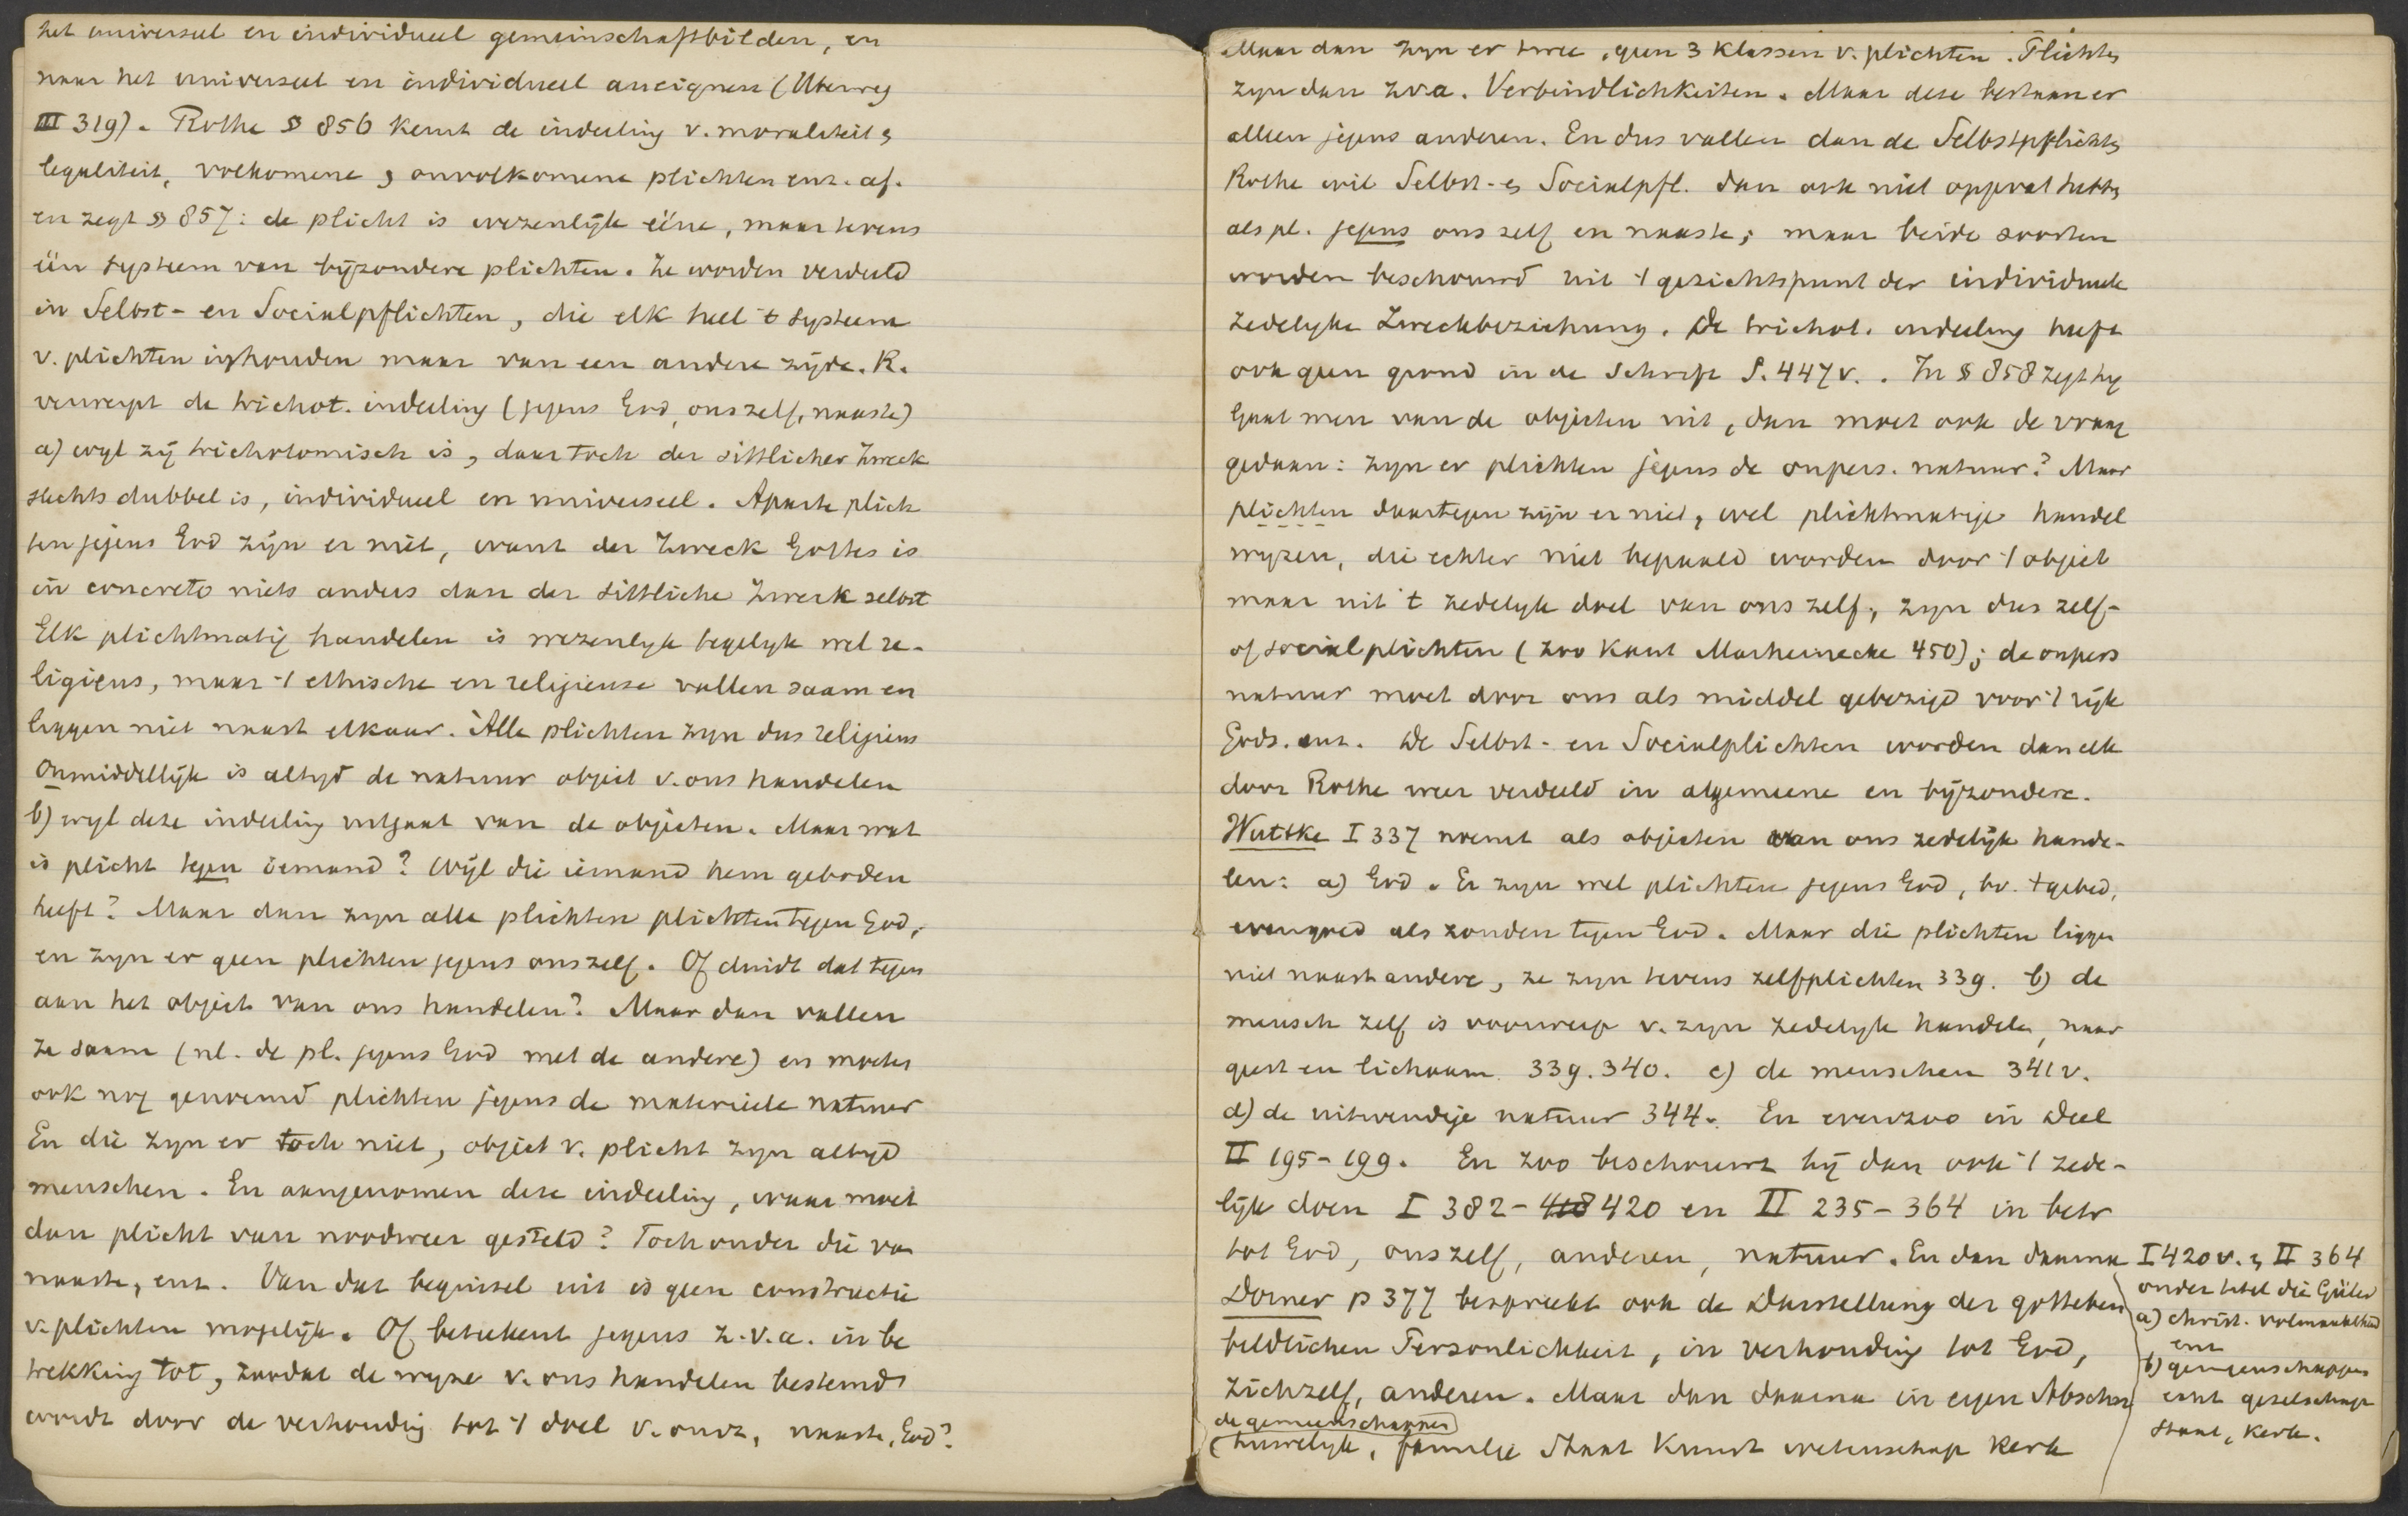 het universeel en individueel gemeinschaftbilden, en
naar het universeel en individueel aneignen (Uberweg
III 319). Rothe § 856 keurt de indeeling v. moraliteit &
legaliteit, volkomene & onvolkomene plichten enz. af.
en zegt § 857: de plicht is wezenlijk ééne, maar tevens
één systeem van bijzondere plichten. Ze worden verdeeld
in Selbst- en Socialpflichten, die elk heel 't systeem
v. plichten inhouden maar van een andere zijde. R.
verwerpt de trichot. indeeling (jegens God, onszelf, naaste)
a) wyl zij trichotomisch is, daar toch der sittlicher Zweck
slechts dubbel is, individueel en universeel. Aparte plich
ten jegens God zijn er niet, want der Zweck Gottes is
in concreto niets anders dan der sittliche Zweck selbst
Elk plichtmatig handelen is wezenlyk tegelyk wel re-
ligieus, maar 't ethische en religieuse vallen saam en
liggen niet naast elkaar. Alle plichten zyn dus religieus
Onmiddellijk is altyd de natuur object v. ons handelen
b) wyl deze indeeling uitgaat van de objecten. Maar wat
is plicht tegen iemand? Wijl die iemand hem geboden
heeft? Maar dan zyn alle plichten plichten tegen God,
en zyn er geen plichten jegens onszelf. Of duidt dat tegen
aan het object van ons handelen? Maar dan vallen
ze saam (nl. de pl. jegens God met de andere) en moeten
ook nog genoemd plichten jegens de materieele natuur
En die zyn er toch niet, object v. plicht zyn altyd
menschen. En aangenomen deze indeeling, waar moet
dan plicht van noodweer gesteld? Toch onder die van
naaste, enz. Van dat beginsel uit is geen constructie
v. plichten mogelijk. Of beteekent jegens z.v.a. in be
trekking tot, zoodat de wyze v. ons handelen bestemd
wordt door de verhouding tot 't doel v. onsz, naaste, God?
Maar dan zyn er twee, geen 3 klassen v. plichten. Plichten
zyn dan zva. Verbindlichkeiten. Maar deze bestaan er
alleen jegens anderen. En dus vallen dan de Selbstpflichten
Rothe wil Selbst- en Socialpfl. dan ook niet opgevat hebben
als pl. jegens ons zelf en naaste; maar beide soorten
worden beschouwd uit 't gezichtspunt der individueele
zedelyke Zweckbeziehung. De trichot. indeeling heeft
ook geen grond in de Schrift S. 447v. . In § 858 zegt hy
Gaat men van de objecten uit, dan moet ook de vraag
gedaan: zyn er plichten jegens de onpers. natuur? Maar
plichten daartegen zijn er niet, wel plichtmatige handel
wyzen, die echter niet bepaald worden door 't object
maar uit 't zedelyk doel van ons zelf, zyn dus zelf-
of socialplichten (zoo Kant Marheinecke 450); de onpers
natuur moet door ons als middel gebezigd voor 't rijk
Gods. enz. De Selbst- en Socialplichten worden dan elk
door Rothe weer verdeeld in algemeene en bijzondere.
Wuttke I 337 noemt als objecten van ons zedelijk hande-
len: a) God. Er zyn wel plichten jegens God, bv. 't gebed,
evengoed als zonden tegen God. Maar die plichten liggen
niet naast andere, ze zyn tevens zelfplichten 339. b) de
mensch zelf is voorwerp v. zyn zedelyk handelen, naar
geest en lichaam. 339. 340. c) de menschen 341v.
d) de uitwendige natuur 344. En evenzoo in Deel
II 195-199. En zoo beschouwt hij dan ook 't zede-
lijk doen I 382-418 420 en II 235-364 in betr
tot God, onszelf, anderen, natuur. En dan daarna I 420v. & II 364
onder titel die Güter
a) christ. volmaaktheid
enz
b) gemeenschappen
enz geselschap
staat, kerk.
Dorner p 377 bespreekt ook de Darstellung der gotteben
beldlichen Personlichkeit, in verhouding tot God,
zichzelf, anderen. Maar dan daarna in eigen Abschn.
de gemeenschappen
(huwelyk, familie Staat Kunst wetenschap Kerk